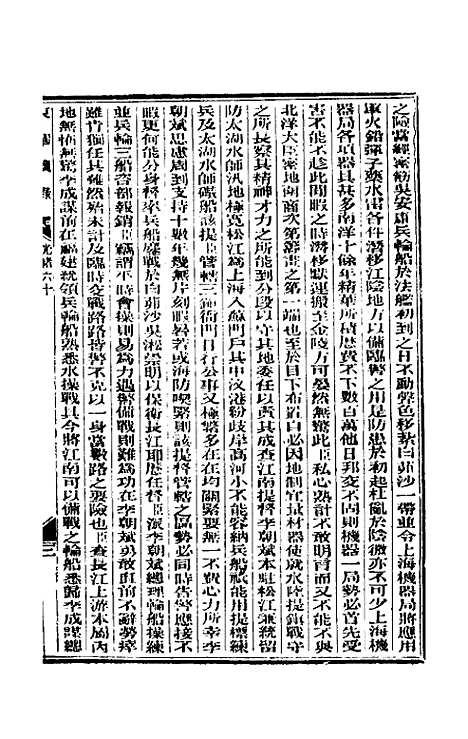 之險當經密飭吳安康兵輪船於法艦初到之日不動聲色移紮白茆沙一帶並令上海機器局將應用
軍火鉛彈子藥水雷各件潛移江陰地方以備臨警之用是防患於初起杜亂於陰微亦不可少上海機
器局各項器具甚多南洋十餘年精華所積歷費不下數百萬他日邦交不固則機器一局勢必首先受
害不能不趁此閒暇之時潛移默運搬至金陵方可晏然無驚此臣私心熟計不敢明言而又不能不與
北洋大臣密地函商次第籌畫之第一端也至於目下布置自必因地制宜量材器使就水陸提鎮戰守
之所長察其精神才力之所能到分段以守其地委任以責其成查江南提督李朝斌本駐松江兼統留
防太湖水師汛地極寬松江為上海入蘇門戶其中汊港紛歧岸高河小不能容納兵船祗能用提標練
兵及太湖水師礮船該提臣管轄三衙門日行公事又極繁多在在均關緊要無一不費心力所幸李
朝斌思慮周到支持十數年幾無片刻暇晷若或海防喫緊則該提督管轄之區勢必同時告警應接不
暇更何能分身督率兵船鏖戰於白茆沙吳淞崇明以保衛長江耶歷任督臣派李朝斌總理輪船操練
並兵輪三船咨部報銷臣竊謂平時會操則易為力遇警備戰則難為功在李朝斌勇敢直前不辭勞瘁
雖肯獨任其難然殆未計及臨時交戰路路皆警不克以一身當數路之要險也臣查長江上游本屬內
地無怖無驚李成謀前在福建統領兵輪船熟悉水操戰具今將江南可以備戰之輪船悉歸李成謀總
光緒六十
三